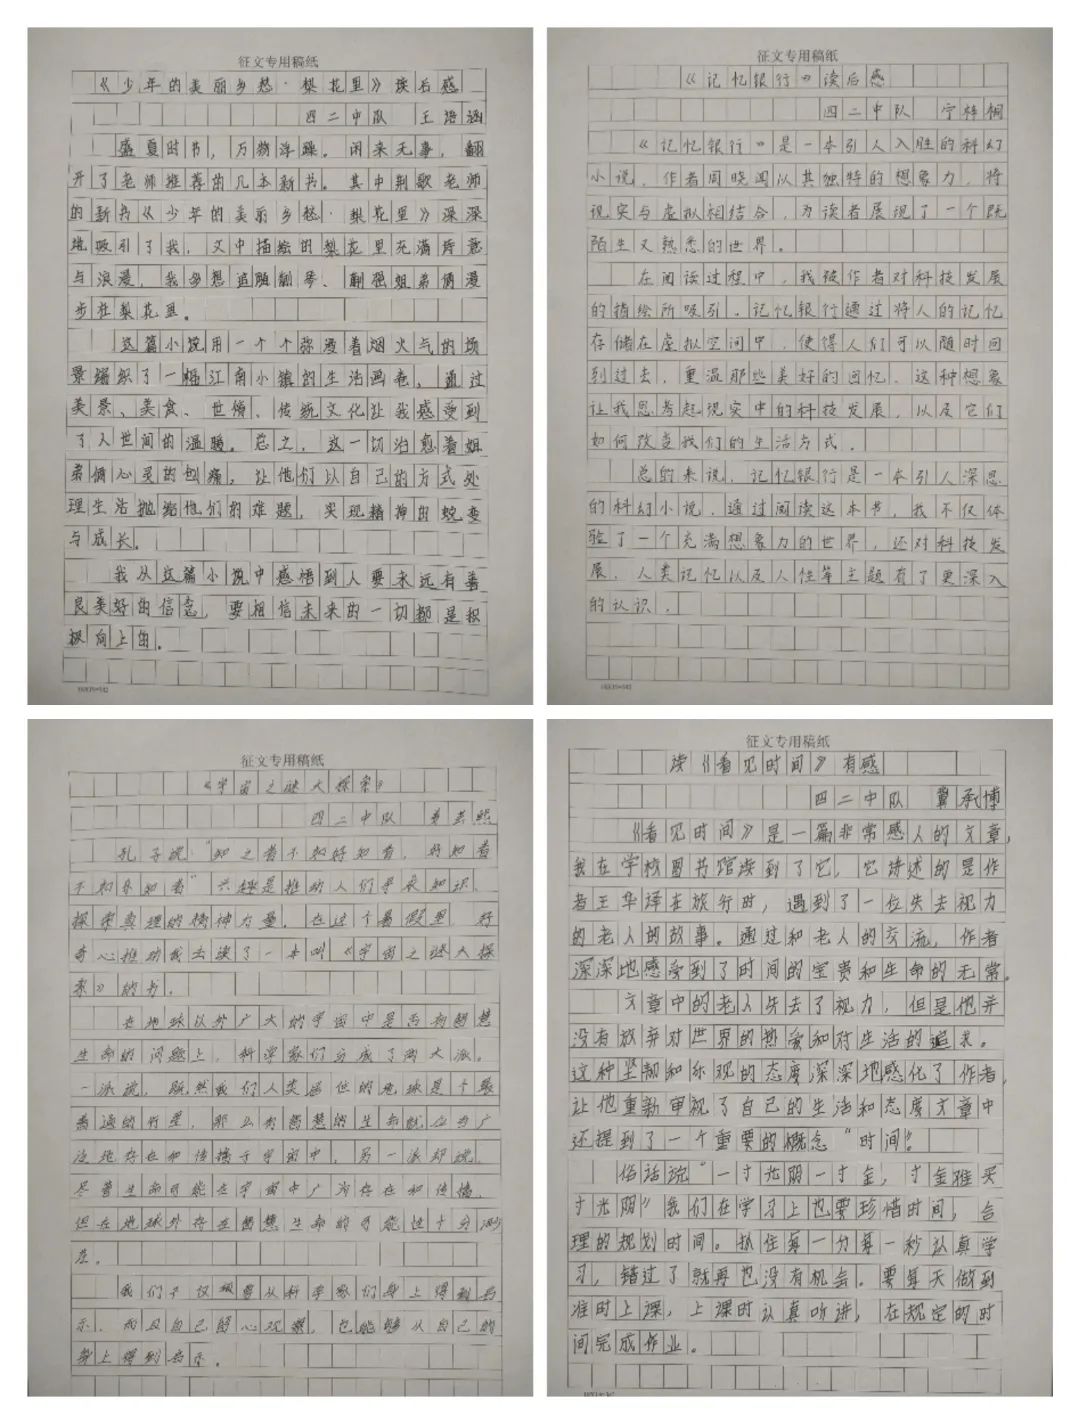 征文专用稿纸
《少年的美丽乡愁·梨花里》读后感
四二中队 王语涵
盛夏时节，万物浮躁。闲来无事，翻
开了老师推荐的几本新书。其中荆歌老师
的新书《少年的美丽乡愁·梨花里》深深
地吸引了我，文中描绘的梨花里充满诗意
与浪漫，我多想追随荆琴、荆强姐弟俩漫
步在梨花里。
这篇小说用一个个弥漫着烟火气的场
景编织了一幅江南小镇的生活画卷，通过
美景、美食、世情、传统文化让我感受到
了人世间的温暖。总之，这一切治愈着姐
弟俩心灵的创痛，让他们以自己的方式处
理生活抛给他们的难题，实现精神的蜕变
与成长。
我从这篇小说中感悟到人要永远有善
良美好的信念，要相信未来的一切都是积
极向上的。
16X19=342
征文专用稿纸
《记忆银行》读后感
四二中队 宁梓桐
《记忆银行》是一本引人入胜的科幻
小说，作者周晓闻以其独特的想象力，将
现实与虚拟相结合，为读者展现了一个既
陌生又熟悉的世界。
在阅读过程中，我被作者对科技发展
的描绘所吸引．记忆银行通过将人的记忆
存储在虚拟空间中，使得人们可以随时回
到过去，重温那些美好的回忆．这种想象
让我思考起现实中的科技发展，以及它们
如何改变我们的生活方式．
总的来说，记忆银行是一本引人深思
的科幻小说．通过阅读这本书，我不仅体
验了一个充满想象力的世界，还对科技发
展，人类记忆以及人性等主题有了更深入
的认识．
征文专用稿纸
《宇宙之谜大探索》
四二中队
孔子说："知之者不如好知者，好知者
不如乐知者"兴趣是推动人们寻求知识、
探索真理的精神力量．在这个暑假里，好
奇心推动我去读了一本叫《宇宙之谜大探
索》的书．
在地球以外广大的宇宙中是否有智慧
生命的问题上，科学家们分成了两大派。
一派说，既然我们人类居住的地球是个很
普通的行星，那么有智慧的生命就应当广
泛地存在和传播于宇宙中，另一派却说，
尽管生命可能在宇宙中广为存在和传播，
但在地球外存在智慧生命的可能性十分渺
茫。
我们不仅需要从科学家们身上得到启
示，而且自己留心观察，也能够从自己的
身上得到启示。
征文专用稿纸
读《看见时间》有感
四二中队 冀承博
《看见时间》是一篇非常感人的文章，
我在学校图书馆读到了它，它讲述的是作
者王华泽在旅行时，遇到了一位失去视力
的老人的故事。通过和老人的交流，作者
深深地感受到了时间的宝贵和生命的无常。
文章中的老人失去了视力，但是他并
没有放弃对世界的热爱和对生活的追求。
这种坚韧和乐观的态度深深地感化了作者，
让他重新审视了自己的生活和态度文章中
还提到了一个重要的概念"时间"。
俗话说"一寸光阴一寸金，寸金难买
寸光阴"我们在学习上也要珍惜时间，合
理的规划时间。抓住每一分每一秒认真学
习，错过了就再也没有机会。要每天做到
准时上课，上课时认真听讲，在规定的时
间完成作业。